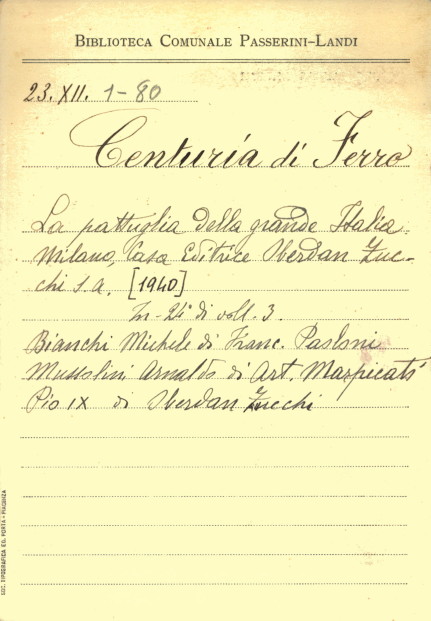 BIBLIOTECA COMUNALE PASSERINI-LANDI
23.XII. 1-80
Centuria di Ferro
La pattuglia della grande Italia.
Milano, Casa Editrice Oberdan Zuc-
chi s.a. [1940]
In-24° di voll. 3.
Bianchi Michele di Franc. Paoloni
Mussolini Arnaldo di Art. Marpicati
Pio IX di Oberdan Zucchi
SOC. TIPOGRAFICA ED. PORTA - PIACENZA